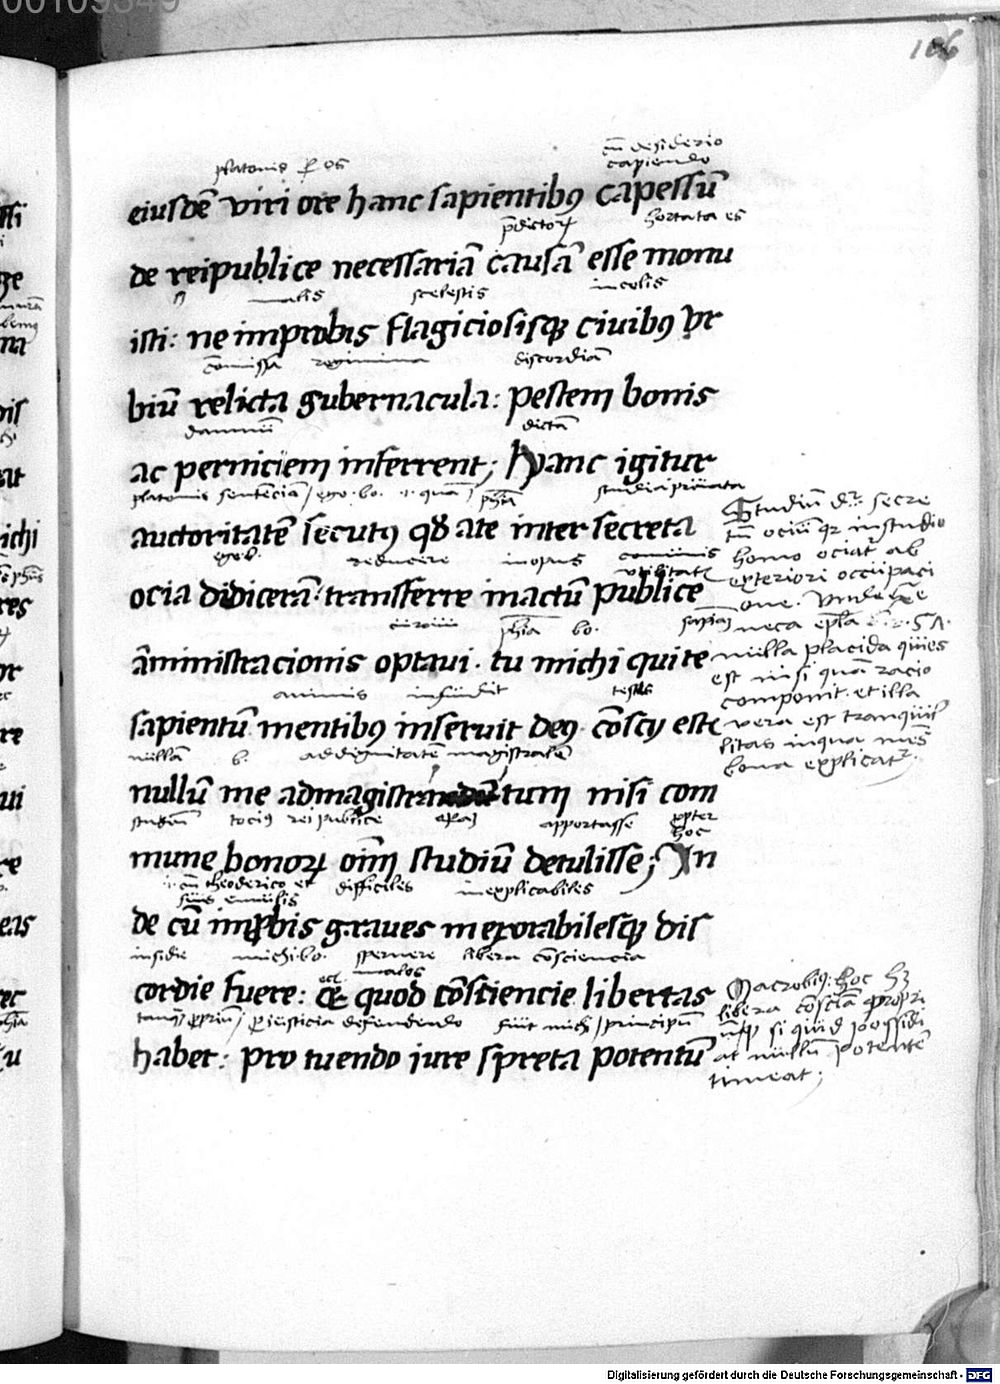 106
cū desiderio
platonis ꝑ os capiendo
eiusdē viri ore hanc sapientibꝯ capessū
p̄dictoꝝ hortata es
de reipublice necessariā causā esse monu
malis scelestis incolis
isti: ne improbis flagiciosisqꝫ ciuibꝯ vr
cōmissa regimina discordiā
biū relicta gubernacula: pestem bonis
damnū dictā
ac perniciem inferrent; hanc igitur
platonis sentenciā ego. bo. quā phīa studia priuata
auctoritatē secutꝯ qd̄ a te inter secreta
ego b. reducere in opus cōmunis
vtilitatē
ocia didicerā: transferre in actū publice
phīa bo. sapīaꝫ
āministracionis optaui. tu michi qui te
animis infūdit testes
sapientū mentibꝯ inseruit deꝯ cōscij este
nullā b. ad dignitatē magistralē
nullū me ad magistratum nisi com
tocius rei publice apportasse ꝓpter
hoc
mune bonoꝝ oīm studiū detulisse; In
cū theoderico et difficiles inexplicabiles
suis emulis
de cū improbis graues inexorabilesqꝫ dis
insidie michi bo. spernere libera cōsciencia
malos
cordie fuere: et quod cōsciencie libertas
tanqꝫ ꝓpriū ꝑ iusticia defendendo fuit michi principū
habet: pro tuendo iure spreta potentū
Studiū dr̄ secre
tū ociū qr in studio
homo ociat̄ ab
exteriori occupaci
one. Vnde se
neca epl̄a
nulla placida quies
est nisi quā racio
componit. et illa
vera est tranquil
litas in qua mēs
bona explicatr̄.
Macrobiꝯ: hoc hꝫ
libera cōsciā propri
ū si quid possidi
at nullū potentē
timeat;
Digitalisierung gefördert durch die Deutsche Forschungsgemeinschaft - DFG